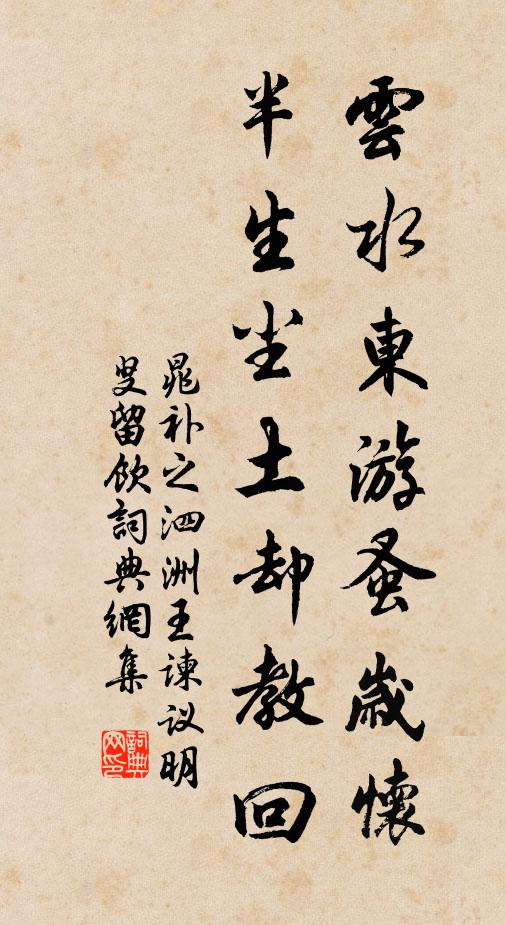 雲水東游蚤歲懷
半生尘土却教回
晁补之泗洲王諫议明
叟留飲詞典網集
詞典网印